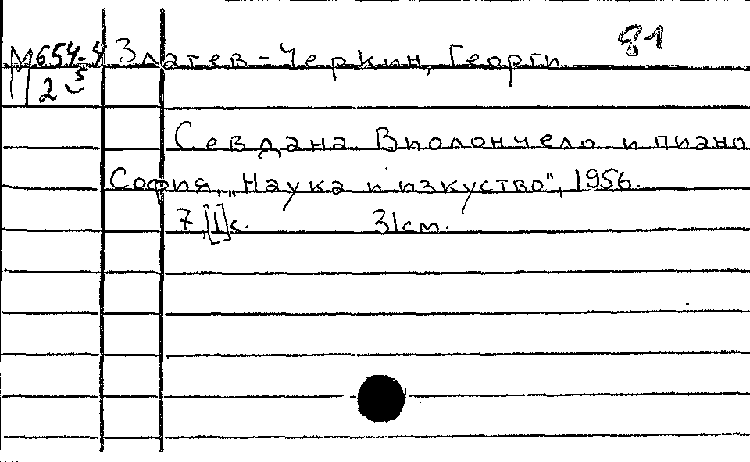 81
М654-4 Златев-Черкин, Георги
2
Севдана. Виолончело и пиано
София, „Наука и изкуство", 1956.
7,[1]с. 31см.